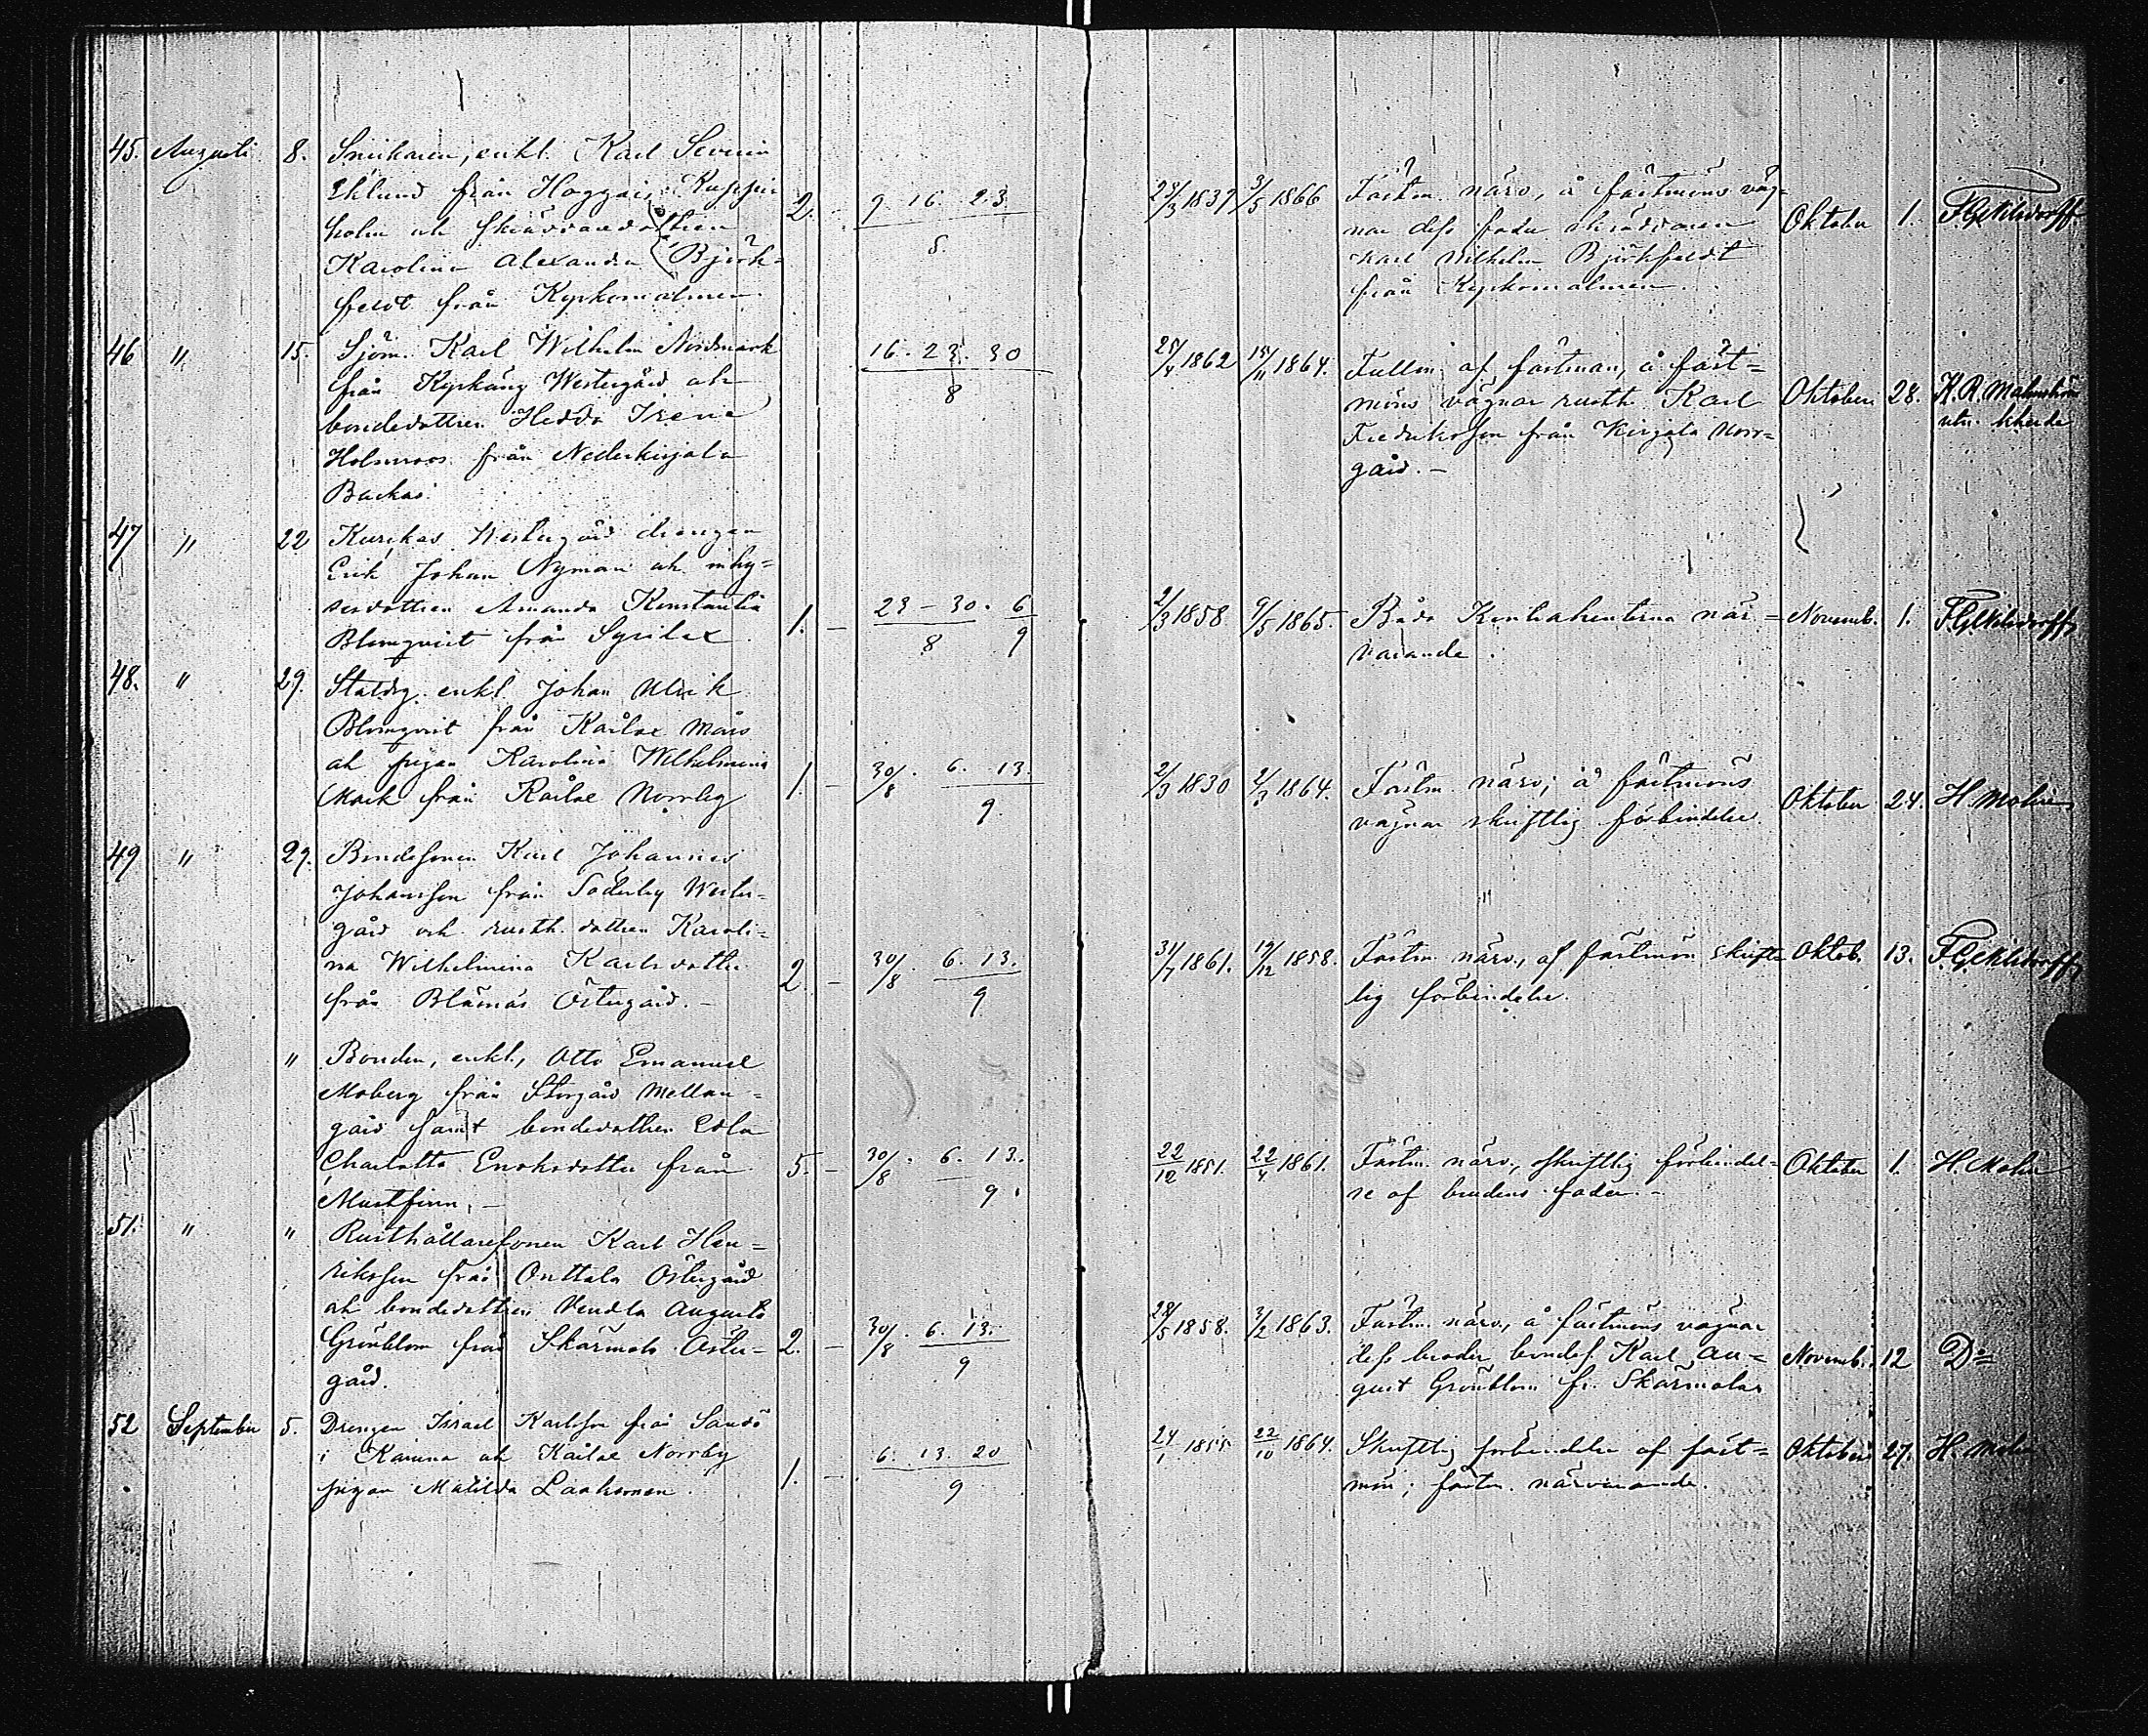 45. Augusti 8. Snikaren, enkl. Karl Severin
Eklund från Haggais
holm och skräddaredottren
Karolina Alexandra Björk=
feldt från Kyrkomalmen.
2. 9. 16. 23.
8
23/3 1837 3/5 1866
Fästm. närv., å fästmöns väg=
nar dess fader skräddaren
Karl Wilhelm Björkfeldt
från Kyrkomalmen.
Oktober 1.
46 " 15. Sjöm. Karl Wilhelm Nordmark
från Kyrkäng Westergård och
bondedottren Hedda Irene
Holmroos från Nederkirjala
Backas
16. 23. 30
8
25/4 1862 15/11 1864.
af fästman, å fäst=
möns vägnar rusth. Karl
Fredriksson från Kirjala Norr=
gård. –
Oktober 28. K. R. Malmström
47 " 22 Westergård drengen
Erik Johan Nyman och inhy=
sesdottren Amanda Konstantia
Blomqvist från Syrilax.
1. – 23 – 30. 6
8 9
2/3 1858 9/5 1865.
Båda Kontrahenterna när=
varande.
Novemb. 1.
48. " 29. Staldrg. enkl. Johan Ulrik
Blomqvist från Kårlax Mårs
och pigan Karolina Wilhelmina
Mark från Kårlax Norrby
1. – 30/8. 6. 13.
9.
2/3 1830 2/3 1864.
Fästm. närv; å fästmöns
vägnar skriftlig förbindelse.
Oktober 24. H. Molin
49 " 29. Bondesonen Karl Johannes
Johansson från Söderby Wester=
gård och rusth. dottren Karoli=
na Wilhelmina Karlsdotter
från Blämäs Östergård. –
2. – 30/8. 6. 13.
9
31/7 1861. 19/12 1858.
Fästm. närv., af fästmön skrift=
lig förbindelse.
Oktob. 13.
" Bonden, enkl., Otto Emanuel
Moberg från Storgård Mellan=
gård samt bondedottren Edla
Charlotta Enoksdotter från
Mustfinn. –
5. – 30/8. 6. 13.
9.
22/12 1851. 22/4 1861.
Fästm. närv., skriftlig förbindel=
se af brudens fader. –
Oktober 1. H. Molin
51. " " Rusthållaresonen Karl Hen=
riksson från Onttala Östergård
och bondedottren Vendla Augusta
Grönblom från Skärmola Öster=
gård.
2. – 30/8. 6. 13.
9
28/5 1858. 3/2 1863.
Fästm. närv., å fästmöns vägnar
dess broder bondes. Karl Au=
gust Grönblom fr. Skärmola
Novemb. 12 D:o
52 September 5. Drengen Israel Karlsson från Sandö
i Karuna och Kårlax Norrby
pigan Matilda Laaksonen.
1. – 6. 13. 20
9
24/1 1855 22/10 1864.
Skriftlig förbindelse af fäst=
mön; fästm. närvarande.
Oktober 27. H. Molin